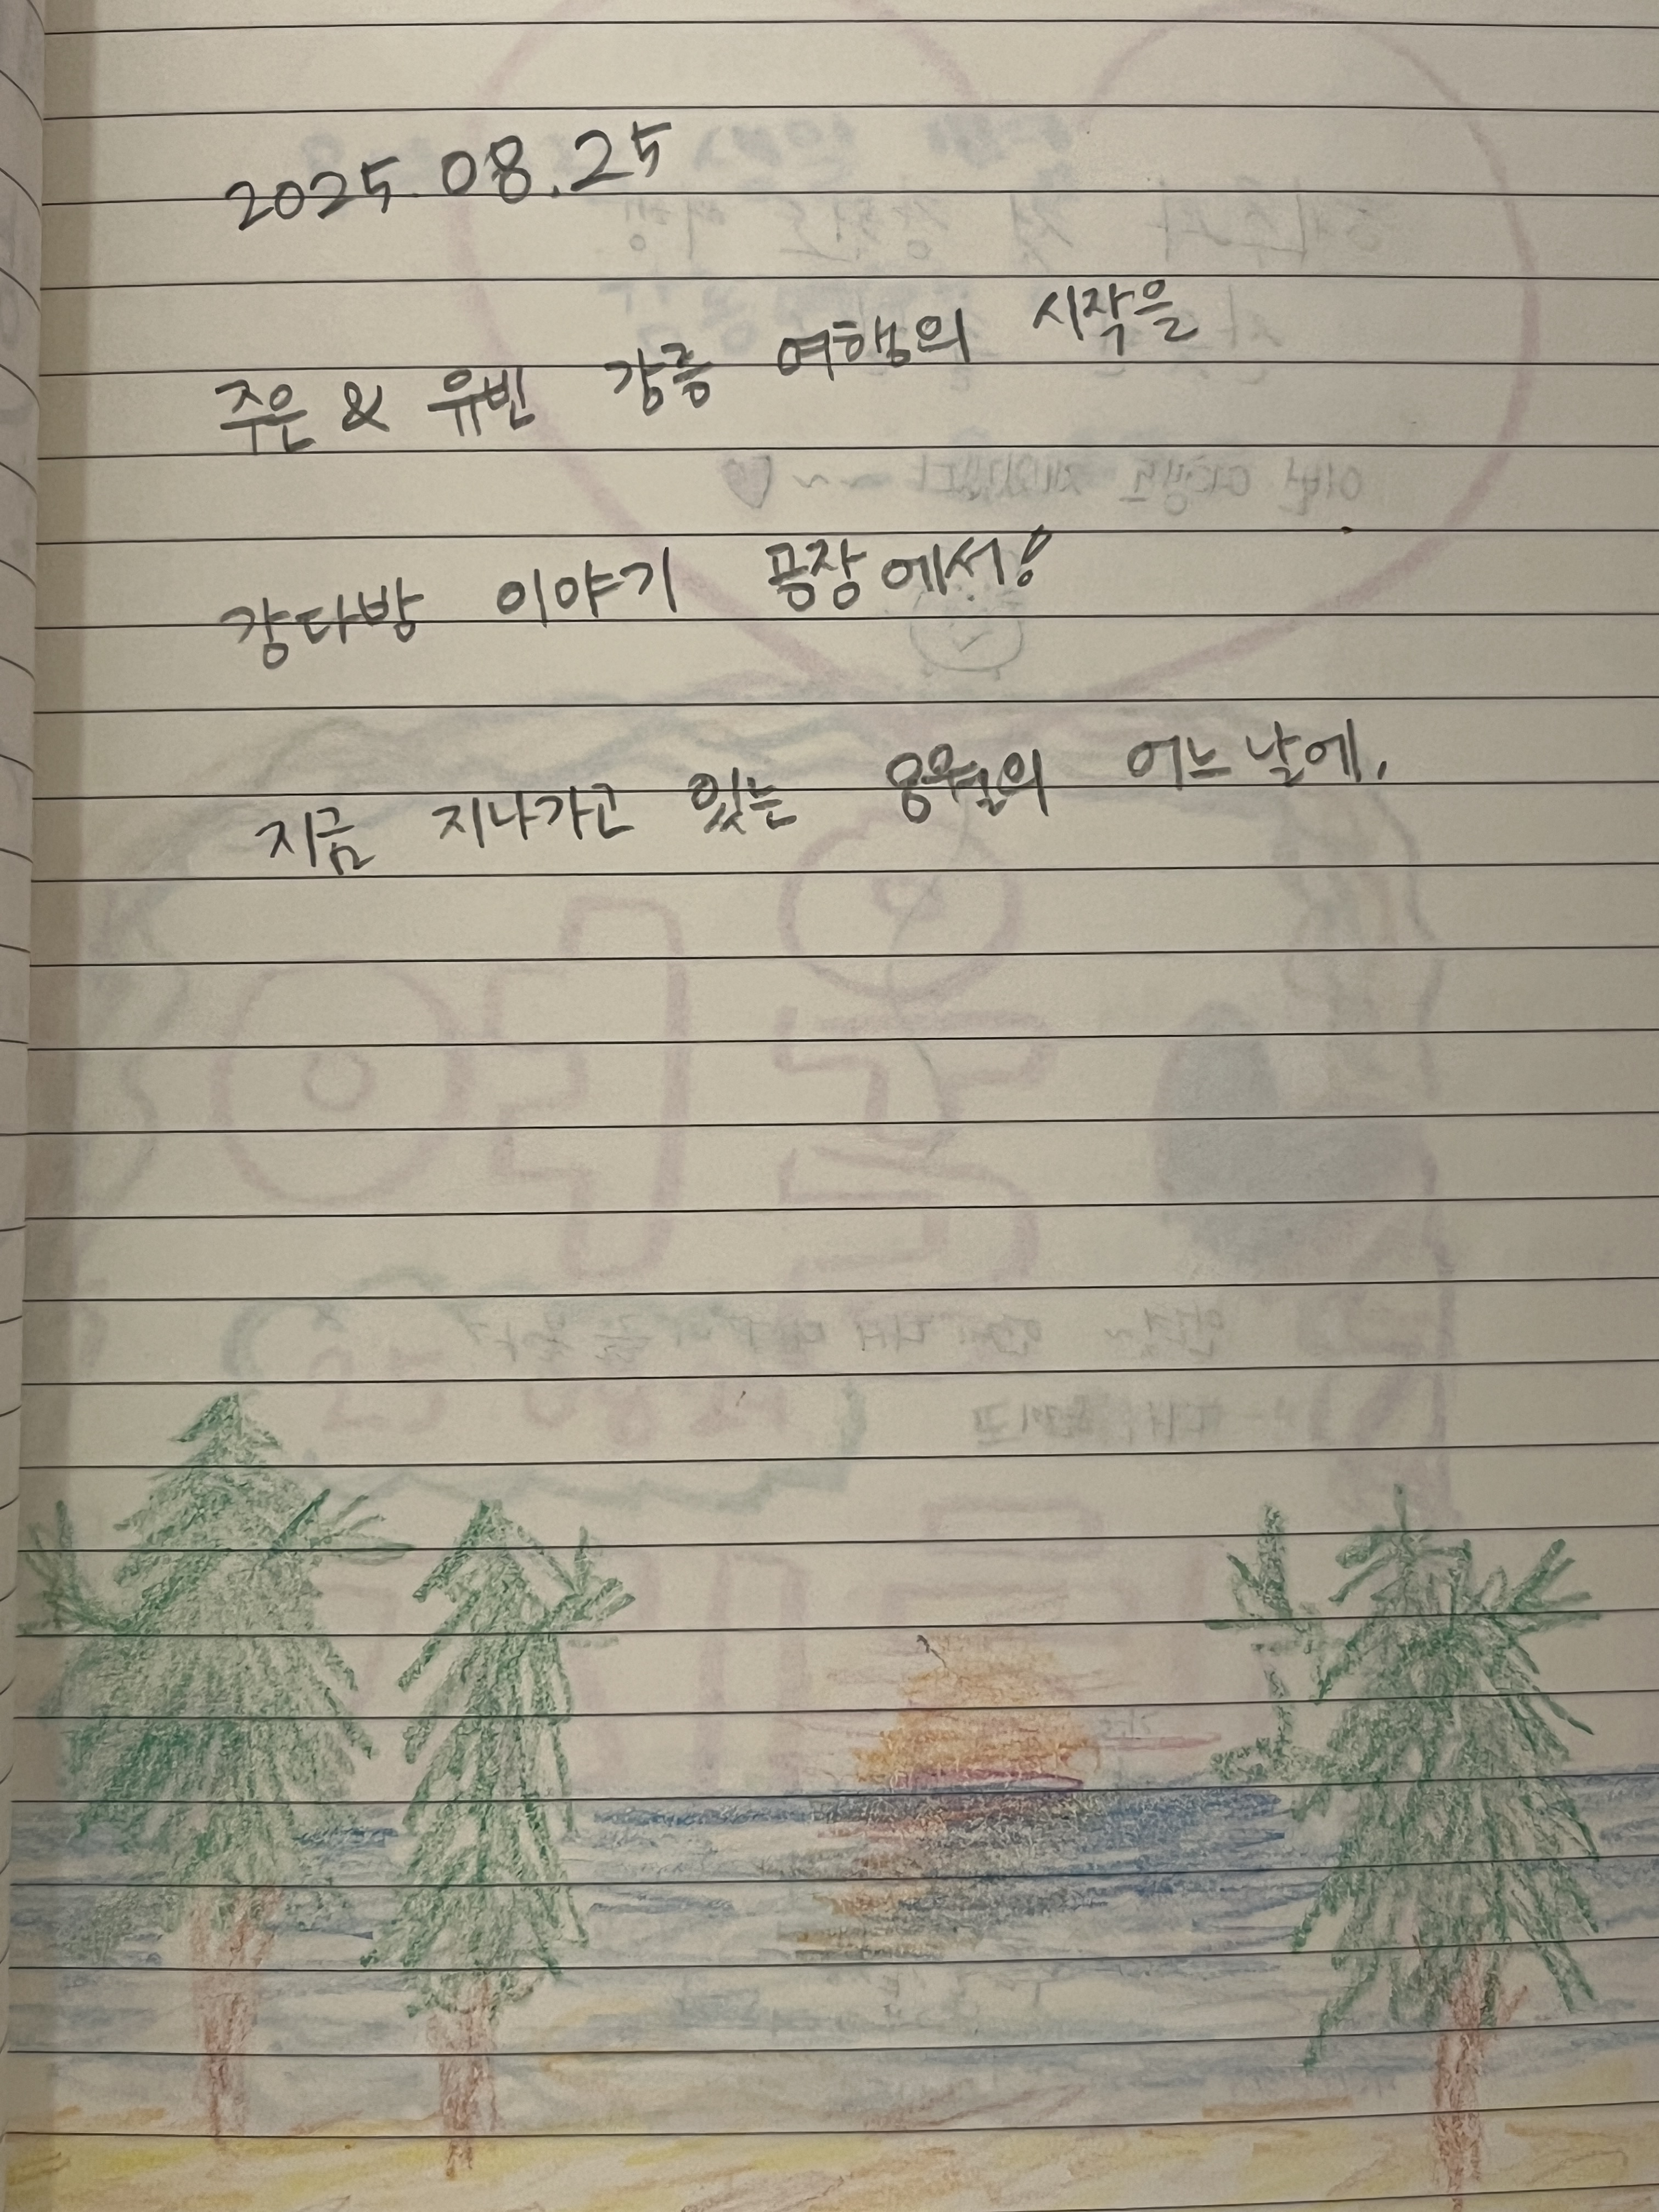 2025.08.25
주은 & 유빈 강릉 여행의 시작을
강다방 이야기 공장에서!
지금 지나가고 있는 8월의 어느날에.